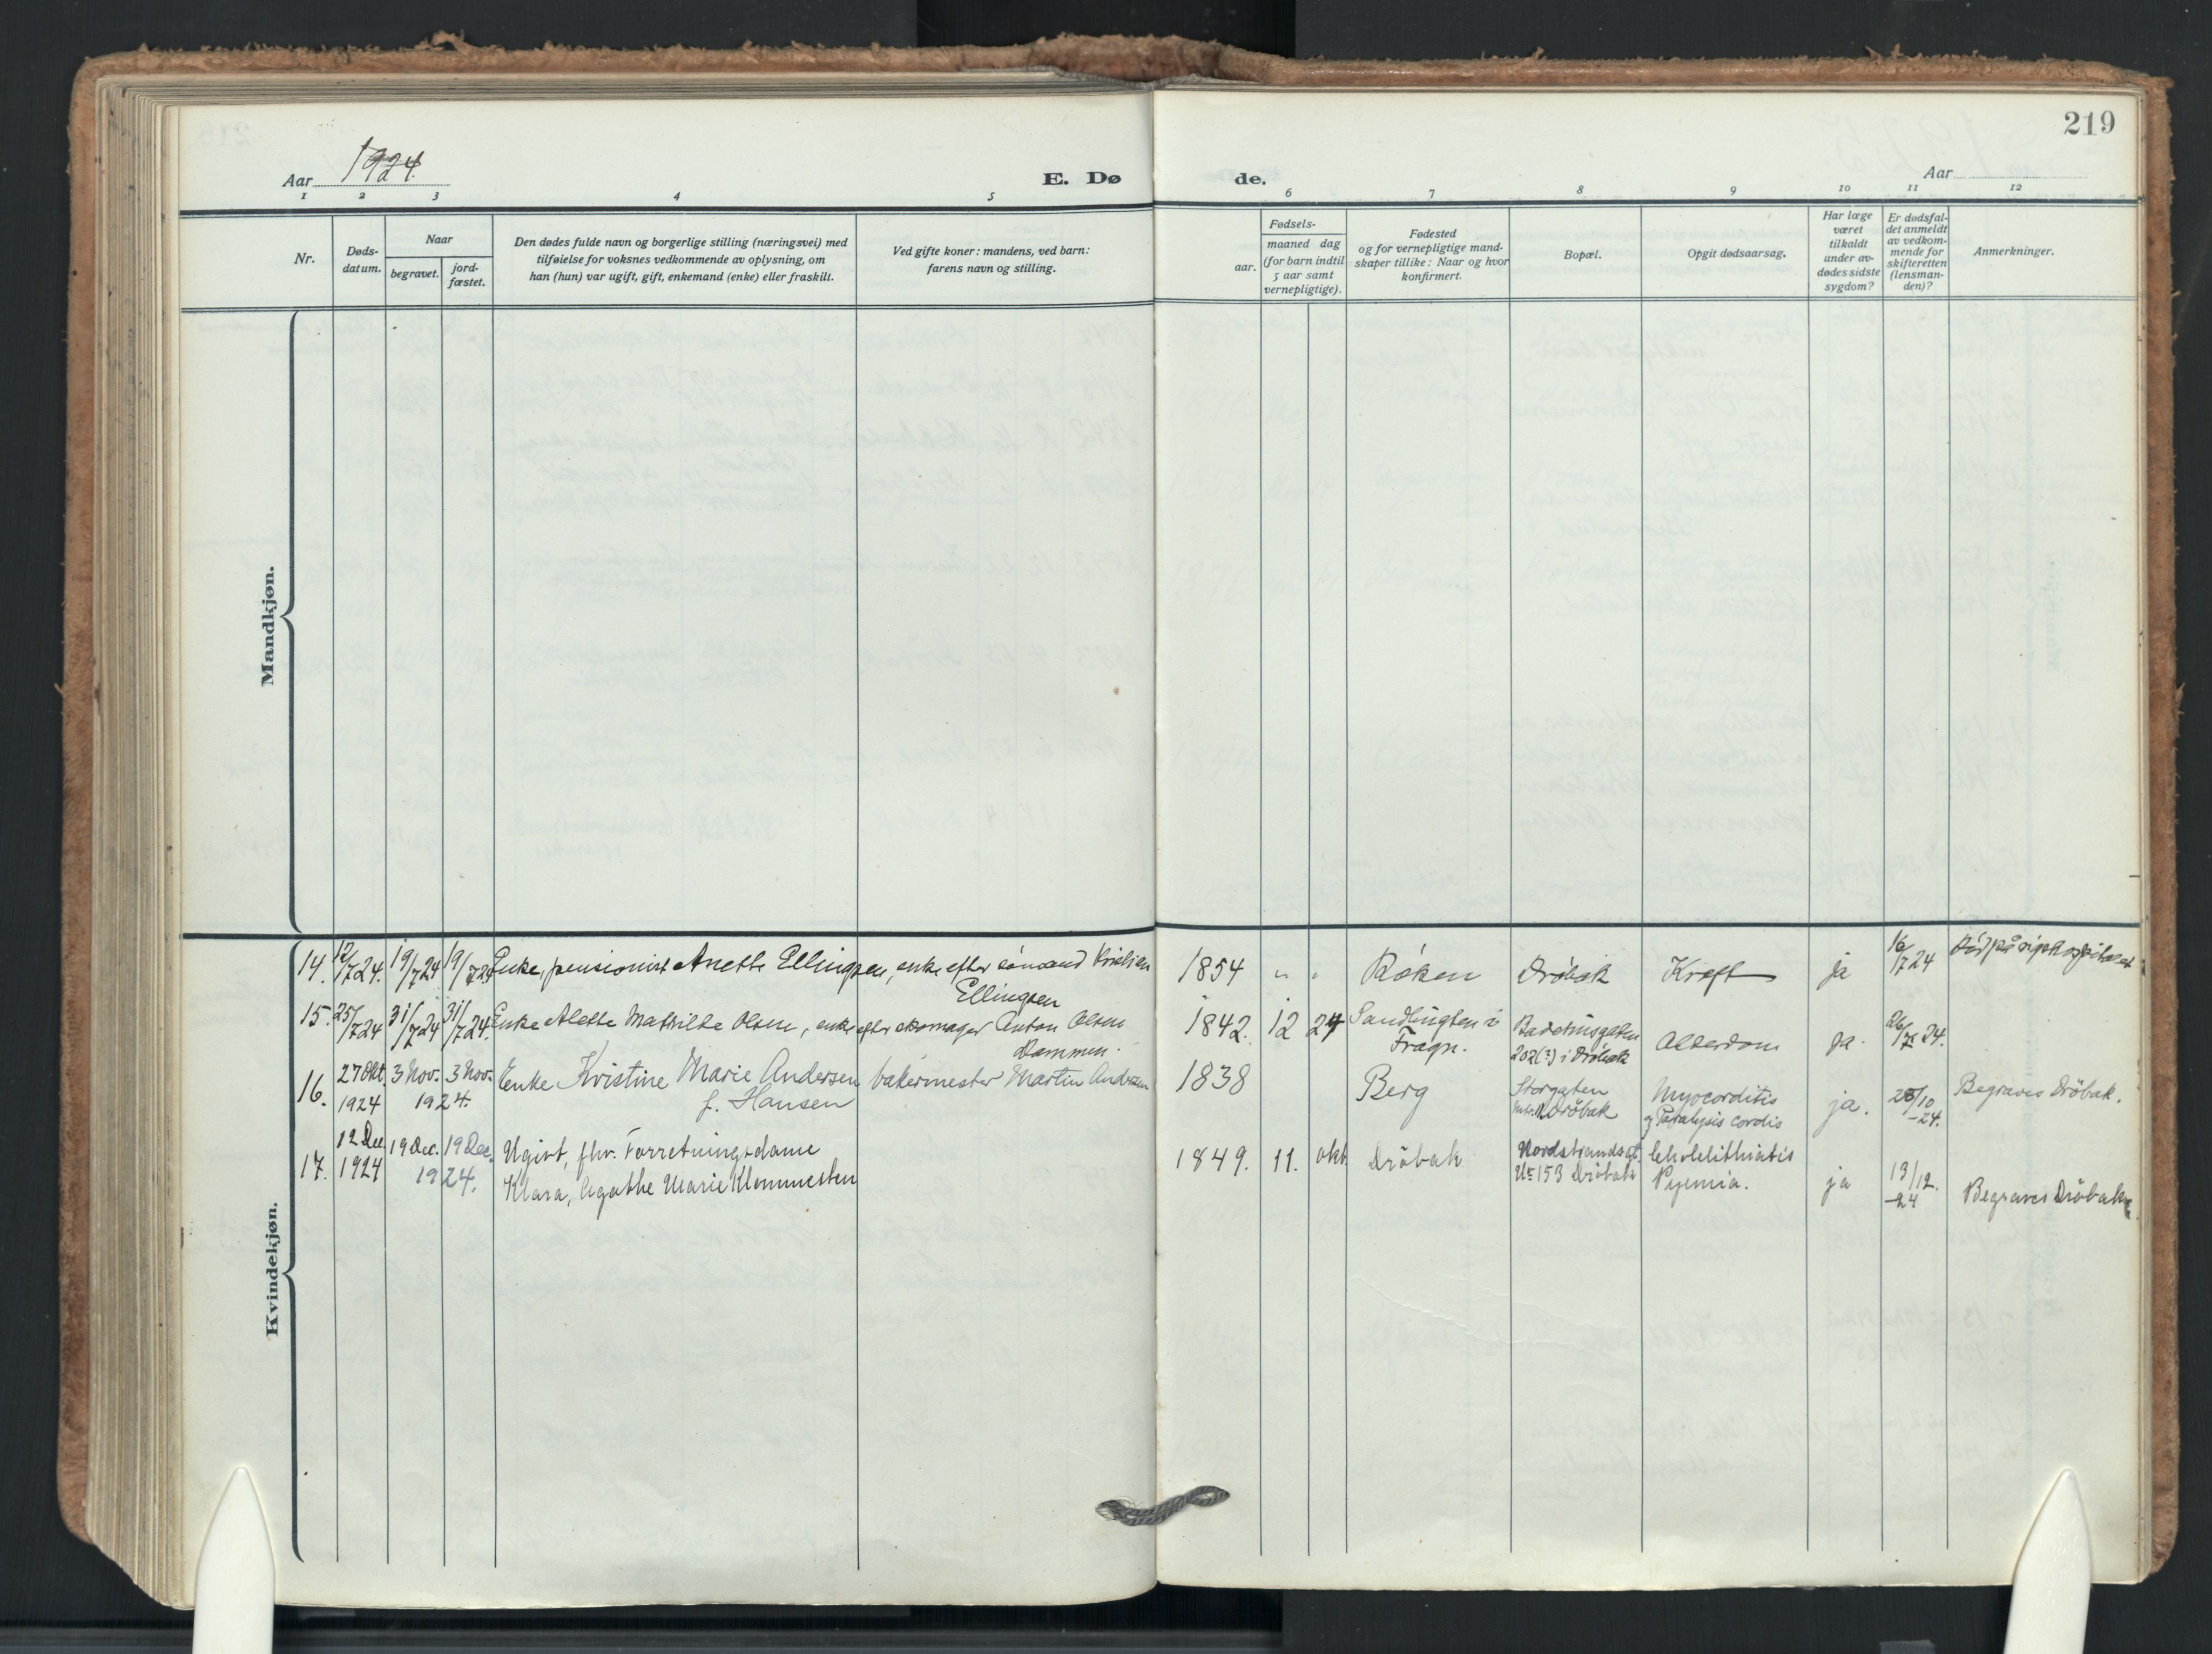 219
Aar 1924.
E. Dø
de.
Aar
1 2 3 4 5
6 7 8 9 10 11 12
Nr.
Døds-
datum.
Naar
begravet.
jord-
fæstet.
Den dødes fulde navn og borgerlige stilling (næringsvei) med
tilføielse for voksnes vedkommende av oplysning, om
han (hun) var ugift, gift, enkemand (enke) eller fraskilt.
Ved gifte koner: mandens, ved barn:
farens navn og stilling.
Fødsels-
aar.
maaned dag
(for barn indtil
5 aar samt
vernepligtige).
Fødested
og for vernepligtige mand-
skaper tillike: Naar og hvor
konfirmert.
Bopæl.
Opgit dødsaarsag.
Har læge
været
tilkaldt
under av-
dødes sidste
sygdom?
Er dødsfal-
det anmeldt
av vedkom-
mende for
skifteretten
(lensman-
den)?
Anmerkninger.
Mandkjøn.
Kvindekjøn.
14. 12/7 24. 19/7 24 19/7 24 Enke, pensionist Anette Ellingsen, enke efter sømand Kristian
Ellingsen
1854 " " Røken Drøbak Kreft ja 16/7 24 Død på
15. 25/7 24 31/7 24 31/7 24. Enke Alette Mathilde Olsen, enke efter skomager Anton Olsen
Dammen.
1842. 12 24 i
Frogn.
Badehusgaten
202(?) i Drøbak
Alderdom ja. 26/7 24.
16. 27 Okt. 3 Nov. 3 Nov. Enke Kristine Marie Andersen bakermester Martin Andersen
1924 1924. f. Hansen
1838 Berg Storgaten
Drøbak
Myocorditis
og Paralysis cordis
ja. 28/10
-24.
Begraves Drøbak.
17. 12 Dec 19 Dec. 19 Dec. Ugivt, fhv. Forretningsdame
1924 1924. Klara, Agathe Marie Klemmetsen
1849. 11. okt. Drøbak Nordstrandsgt.
Nr 153 Drøbak
Cholelithiatis
Pyemia.
ja 13/12.
-24
Begraves Drøbak